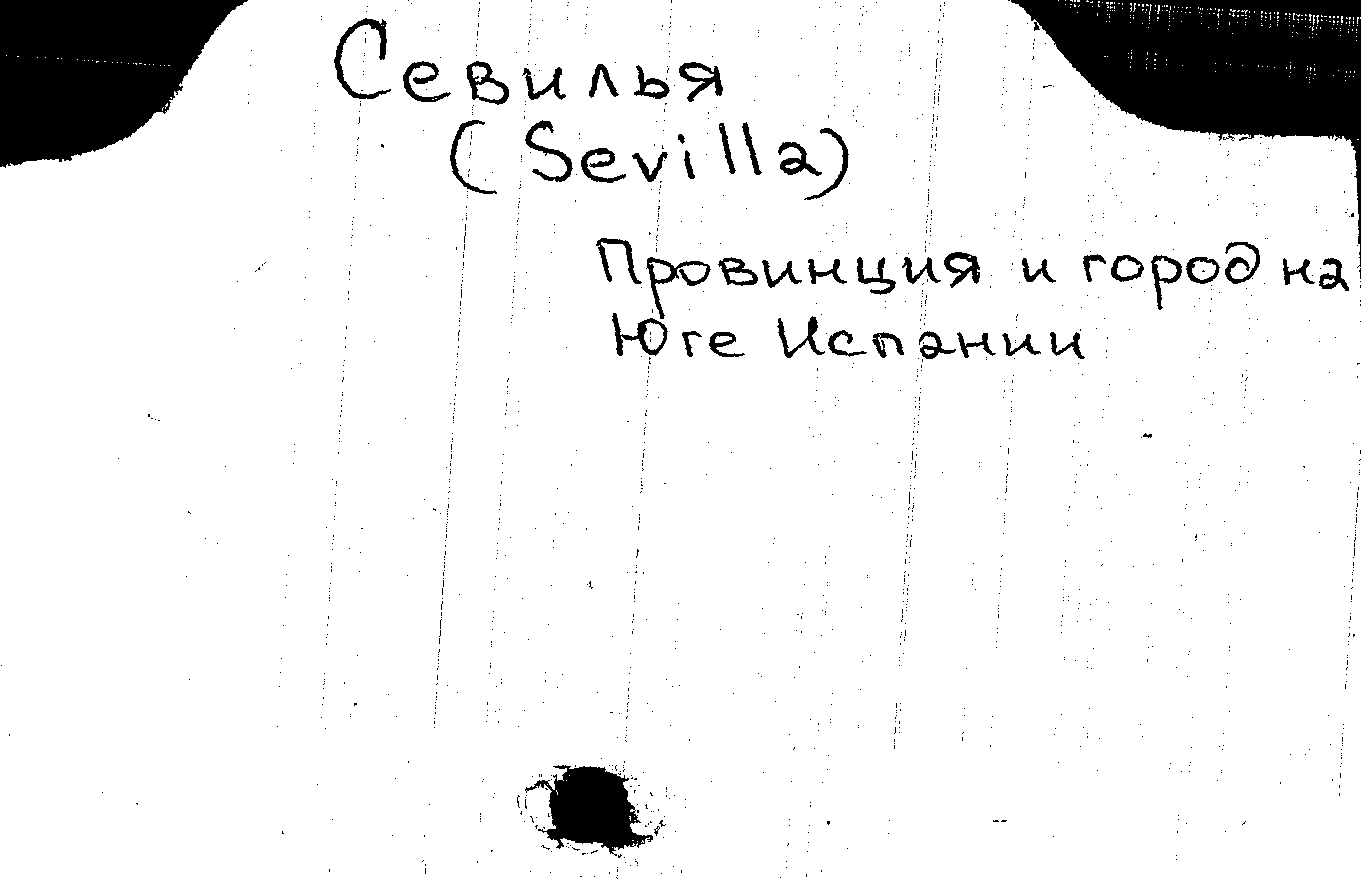 Севилья
(Sevilla)
Провинция и город на
Юге Испании